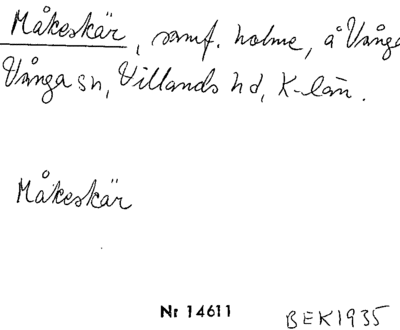 Måkeskär, samf. holme, å Vånga
Vånga sn, Villands hd, K-län.
Måkeskär
Nr 14611
BEK1935